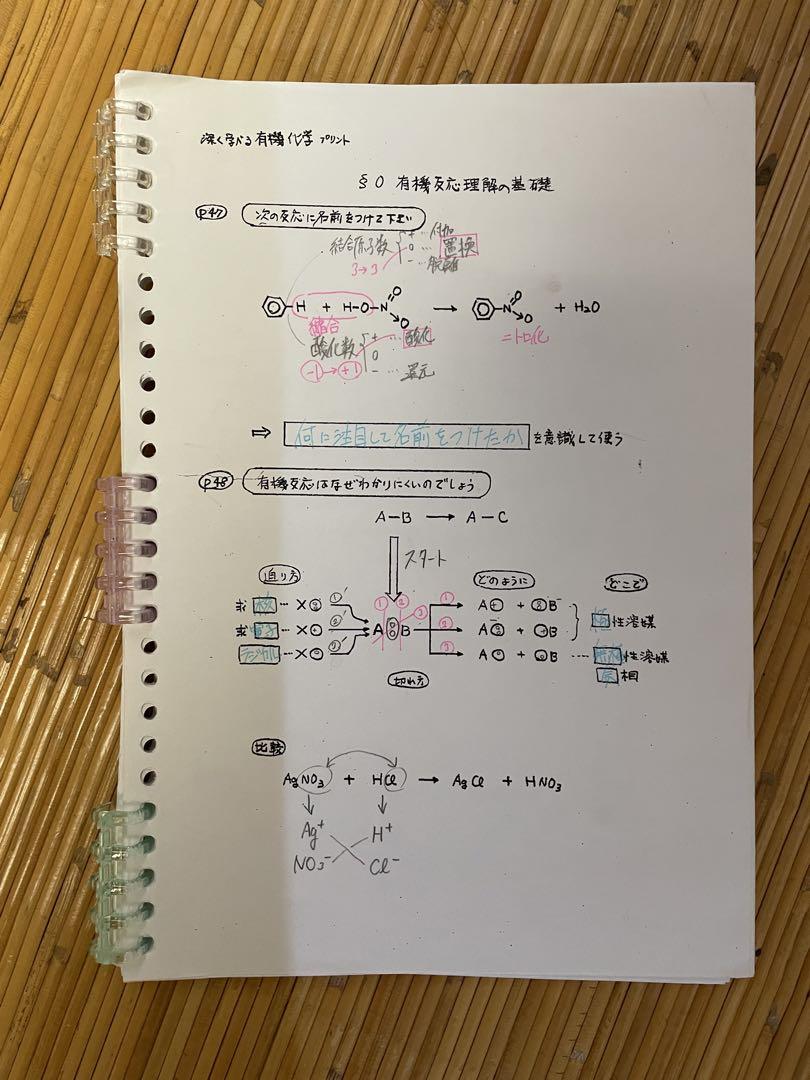 深く学べる有機化学プリント
§0 有機反応理解の基礎
P47 次の反応に名前をつけて下さい
結合原子数 + … 付加
0 … 置換
- … 脱離
3→3
H + H-O-N O O → N O O + H₂O
縮合 =トロ化
酸化数 + … 酸化
0
-1→+1 - … 還元
⇒ 何に注目して名前をつけたか を意識して使う
P48 有機反応はなぜわかりにくいのでしょう
A-B → A-C
スタート
迫り方 どのように どこで
求核 … X ①' ① ② ③ ① A + B⁻ 極性溶媒
求電子 … X ②' A B ② A + B
ラジカル … X ③' ③ A + B … 無極性溶媒
切れ方 気相
比較
AgNO₃ + HCl → AgCl + HNO₃
Ag⁺ H⁺
NO₃⁻ Cl⁻